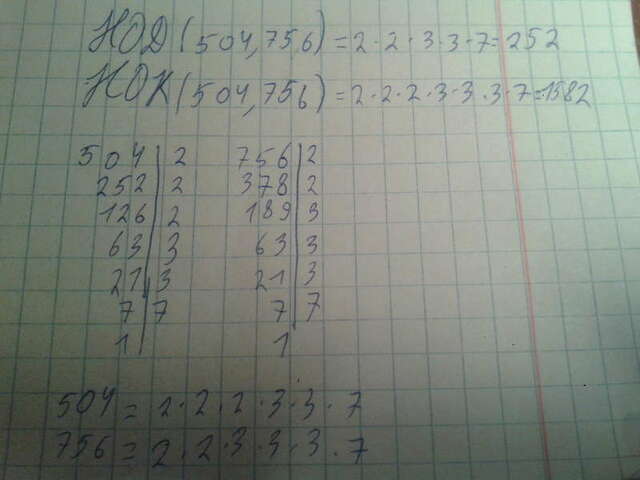 НОД(504,756)=2·2·3·3·7=252
НОК(504,756)=2·2·2·3·3·3·7=1582
504|2 756|2
252|2 378|2
126|2 189|3
63|3 63|3
21|3 21|3
7|7 7|7
1 1
504=2·2·2·3·3·7
756=2·2·3·3·3·7